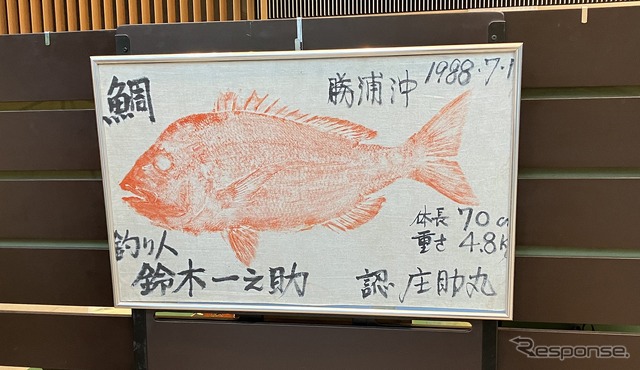 鯛
勝浦沖 1988・7・1
体長 70c
重さ 4.8K
釣り人
鈴木一之助
認 庄助丸
Response.